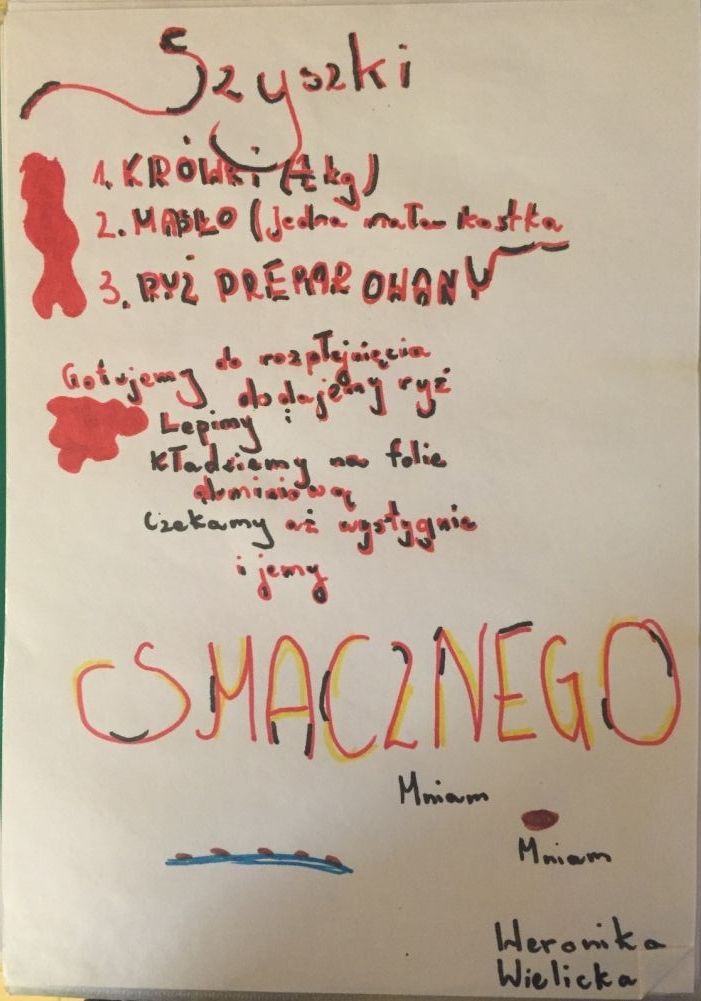 Szyszki
1. KRÓWKI (½ kg)
2. MASŁO (jedna mała kostka
3. RYŻ PREPAROWANY
Gotujemy do rozpłynięcia
dodajemy ryż
Lepimy i
kładziemy na folie
aluminiową
Czekamy aż wystygnie
i jemy
SMACZNEGO
Mniam
Mniam
Weronika
Wielicka